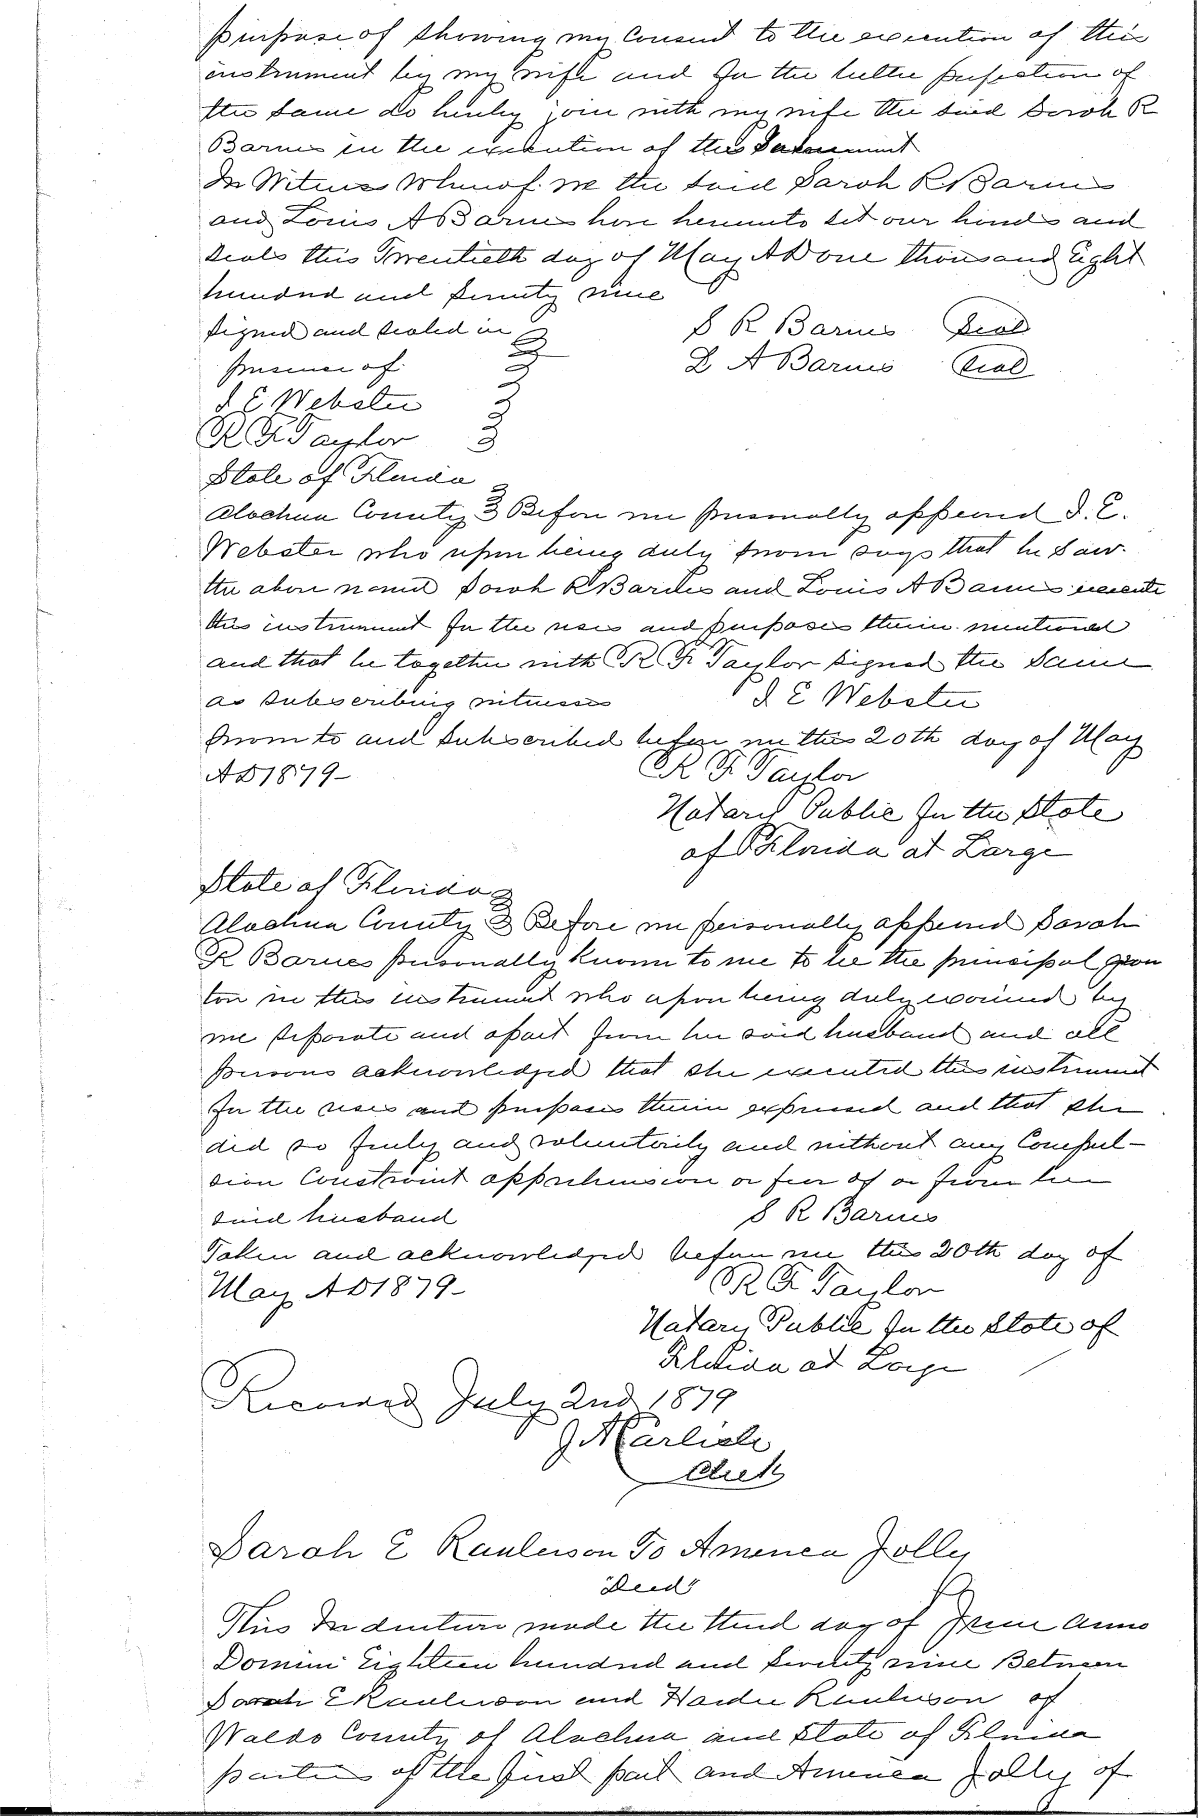 purpose of showing my Consent to the execution of this
instrument by my wife and for the better perfection of
the same do hereby join with my wife the said Sarah R
Barnes in the execution of this Instrument
In Witness Whereof. we the said Sarah R Barnes
and Louis A Barnes have hereunto set our hands and
seals this Twentieth day of May AD one thousand Eight
hundred and seventy nine
Signed and sealed in S R Barnes Seal
presence of L A Barnes Seal
J E Webster
R F Taylor
State of Florida
Alachua County Before me personally appeared J. E.
Webster who upon being duly sworn says that he saw
the above named Sarah R Barnes and Louis A Barnes execute
this instrument for the uses and purposes therein mentioned
and that he together with R F Taylor signed the same
as subscribing witnesses J E Webster
Sworn to and subscribed before me this 20th day of May
AD 1879- R F Taylor
Notary Public for the State
of Florida at Large
State of Florida
Alachua County Before me personally appeared Sarah
R Barnes personally known to me to be the principal gran
tor in this instrument who upon being duly examined by
me separate and apart from her said husband and all
persons acknowledged that she executed this instrument
for the uses and purposes therein expressed and that she
did so freely and voluntarily and without any Compul-
sion Constraint apprehension or fear of or from her
said husband S R Barnes
Taken and acknowledged before me this 20th day of
May AD 1879- R F Taylor
Notary Public for the State of
Florida at Large
Recorded July 2nd 1879
J A Carlisle
Clerk
Sarah E Raulerson To America Jolly
"Deed"
This Indenture made the third day of June Anno
Domini Eighteen hundred and seventy nine Between
Sarah E Raulerson and Hardee Raulerson of
Waldo County of Alachua and State of Florida
parties of the first part and America Jolly of